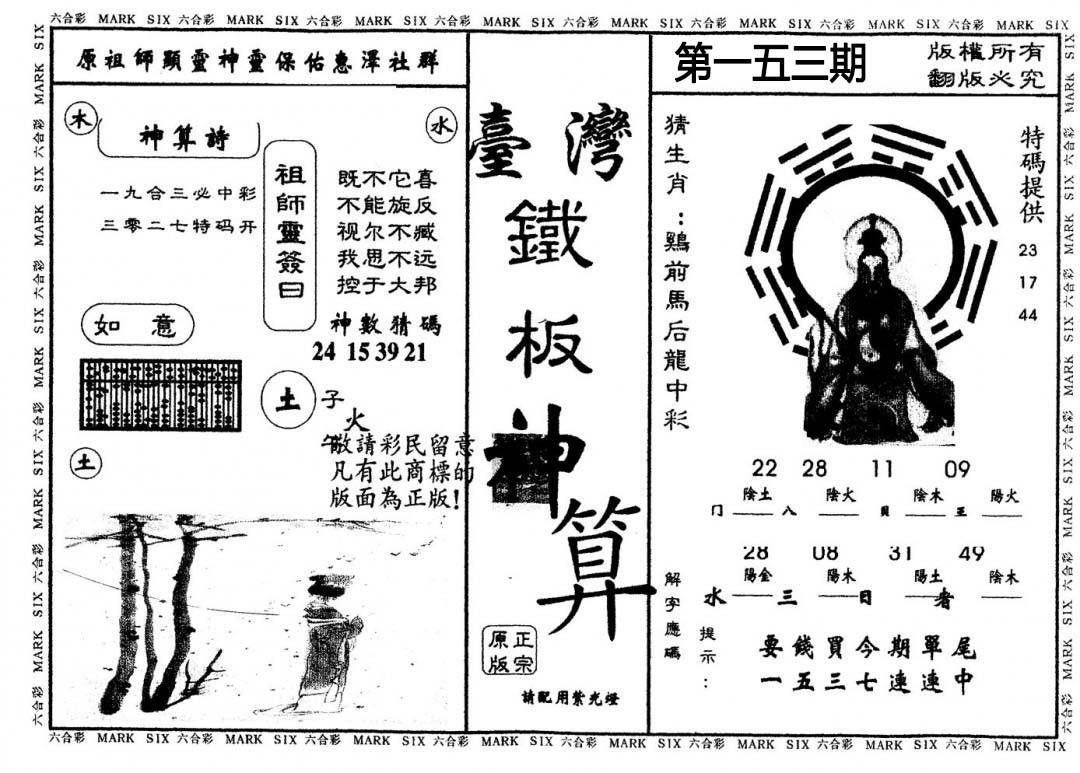 六合彩 MARK SIX 六合彩 MARK SIX 六合彩 MARK SIX 六合彩 MARK SIX 六合彩 MARK SIX 六合彩 MARK SIX 六合彩 MARK SIX 六合彩 MARK SIX
原祖師顯靈神靈保佑惠澤社群
木
神算詩
水
一九合三必中彩
三零二七特码开
祖師靈簽曰
既不它喜
不能旋反
视尔不臧
我思不远
控于大邦
如意
神數猜碼
24 15 39 21
土
子
火
午
敬請彩民留意
凡有此商標的
版面為正版!
土
臺灣
鐵板神算
正宗
原版
請配用紫光燈
第一五三期
版權所有
翻版必究
猜生肖:鷄前馬后龍中彩
特碼提供
23
17
44
22 28 11 09
陰土 陰火 陰木 陽火
门 八 貝 王
28 08 31 49
陽金 陽木 陽土 陰木
水 三 日 者
解字應碼
提示:
要錢買今期單尾
一五三七連連中
六合彩 MARK SIX 六合彩 MARK SIX 六合彩 MARK SIX 六合彩 MARK SIX 六合彩 MARK SIX 六合彩 MARK SIX 六合彩 MARK SIX 六合彩 MARK SIX